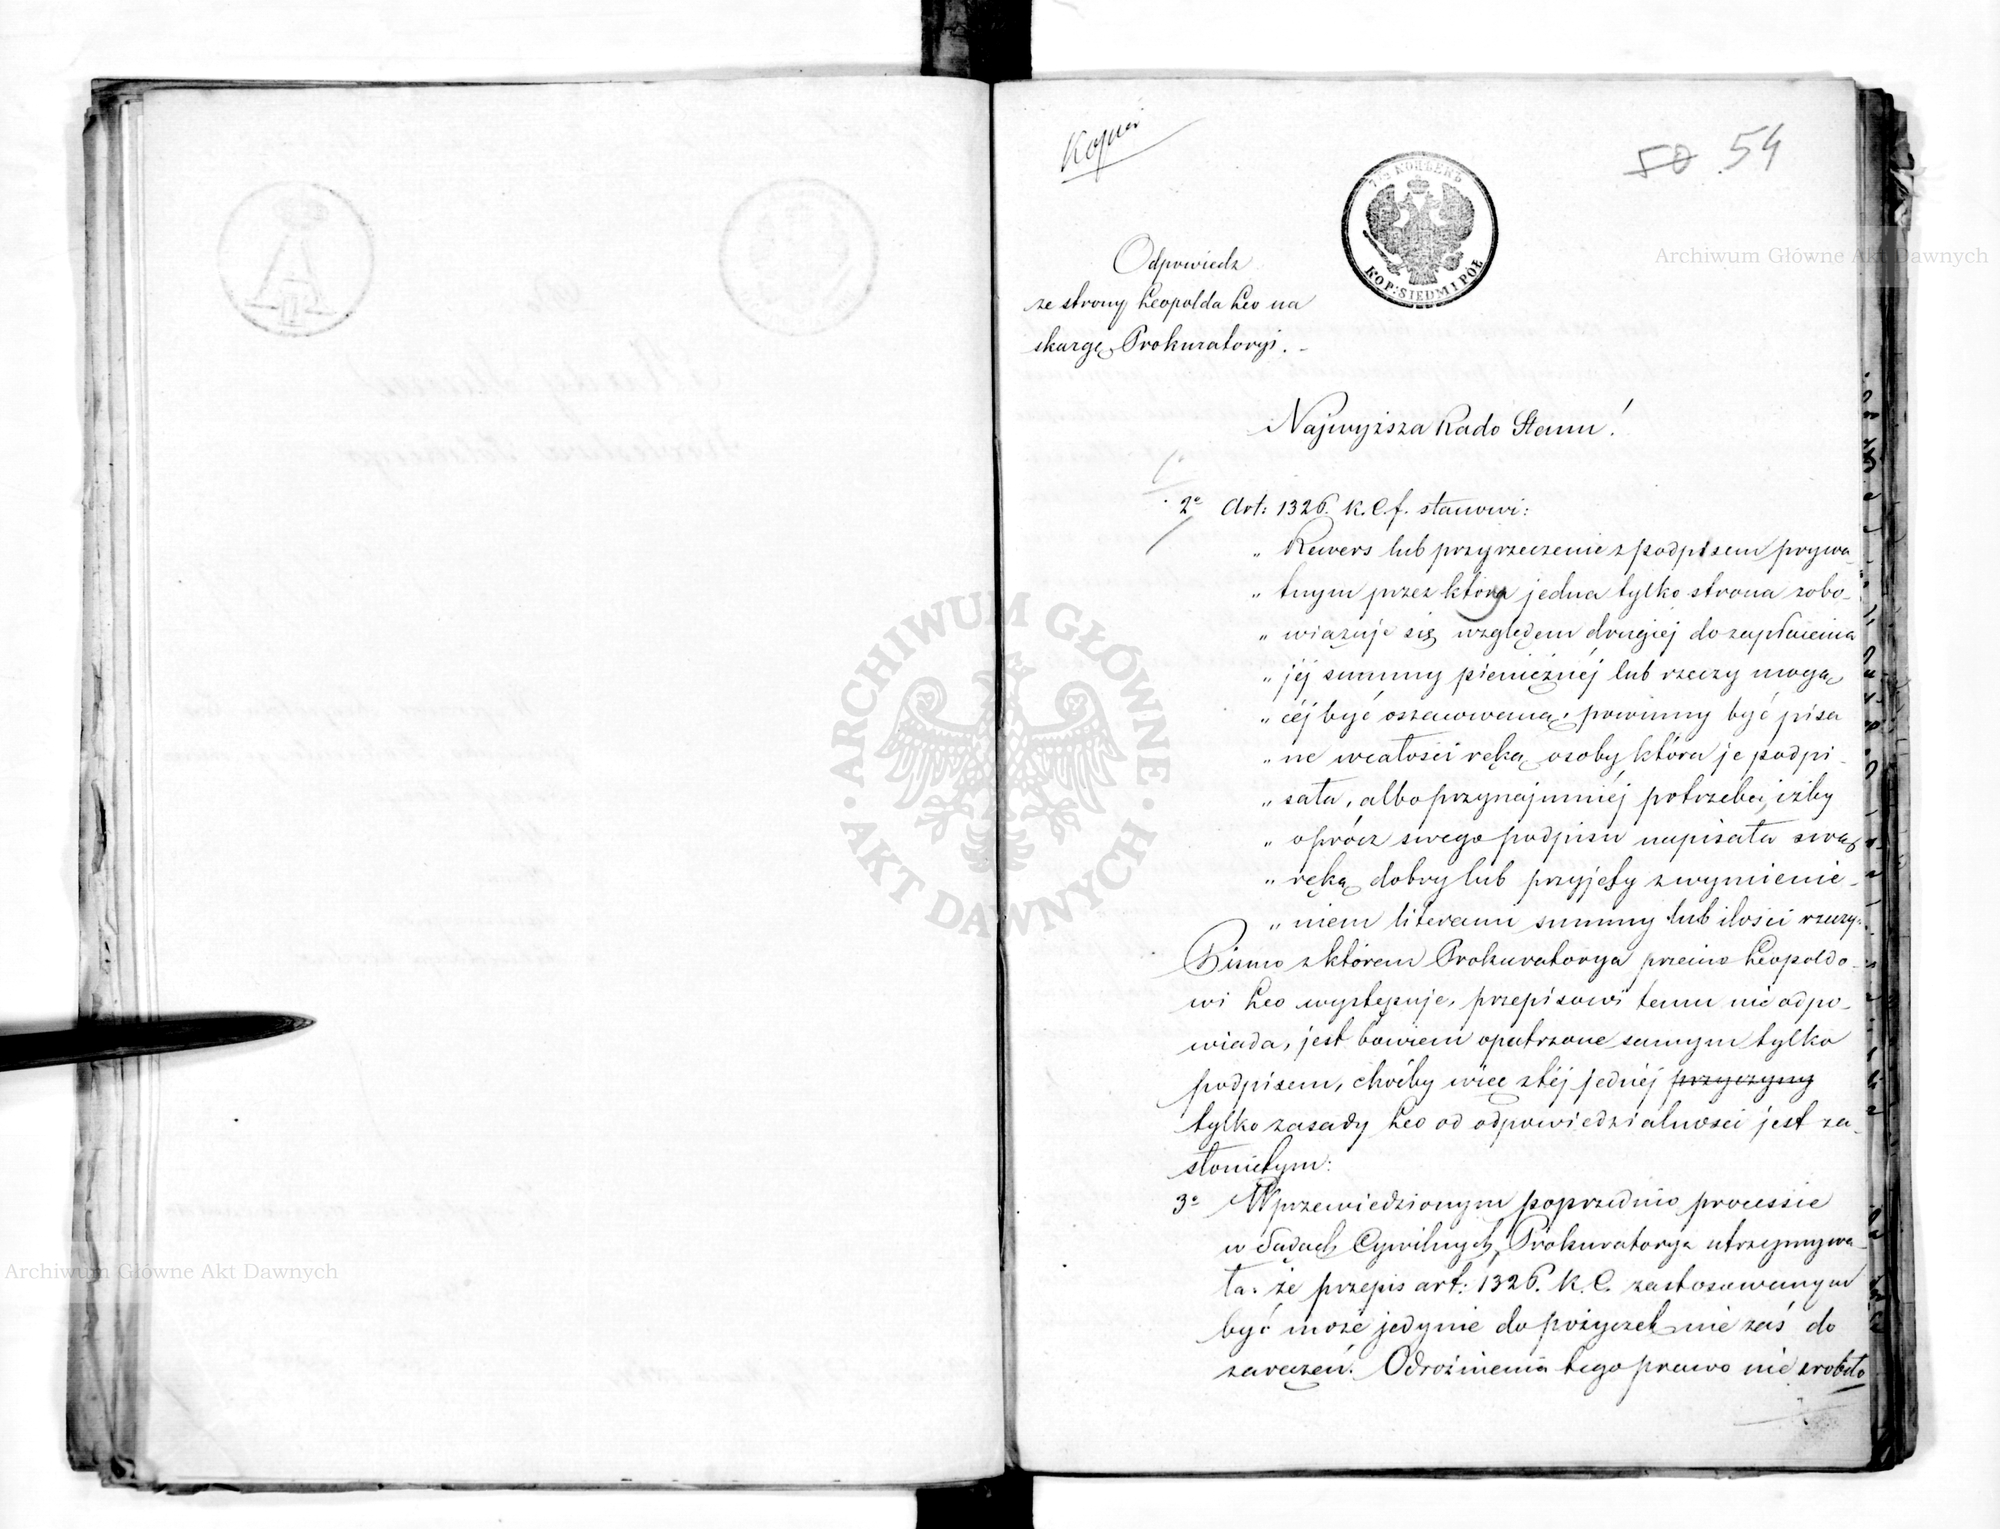 Kopia
50 54
7½ КОПѢЕКЪ
KOP: SIEDM I PÓŁ
Odpowiedz
ze strony Leopolda Leo na
skargę Prokuratoryi. –
Najwyższa Rado Stanu!
2º Art: 1326. K. C. f. stanowi:
„ Rewers lub przyrzeczenie z podpisem prywa-
„ tnym przez który jedna tylko strona zobo-
„ wiązuje się względem drugiej do zapłacenia
„ jéj summy pieniężnéj lub rzeczy mogą
„ céj być oszacowaną, powinny być pisa
„ ne wcałości ręką osoby która je podpi
„ sała, albo przynajmniéj potrzeba, iżby
„ oprócz swego podpisu napisała swą
„ ręką dobry lub przyjęty z wymienie-
„ niem literami summy lub ilości rzeczy.
Pismo z którem Prokuratorya przeciw Leopoldo-
wi Leo występuje, przepisowi temu nie odpo-
wiada, jest bowiem opatrzone samym tylko
podpisem, choćby więc z téj jednéj przyczyny
tylko zasady Leo od odpowiedzialności jest za-
słonietym:
3º W przewiedzionym poprzednio processie
w Sądach Cywilnych, Prokuratorya utrzymywa-
ła: że przepis art: 1326. K. C. zastosowanym
być może jedynie do pożyczek nie zaś do
zaręczeń. Odróżnienia tego prawo nie zrobiło
Archiwum Główne Akt Dawnych
Archiwum Główne Akt Dawnych
ARCHIWUM GŁÓWNE
AKT DAWNYCH